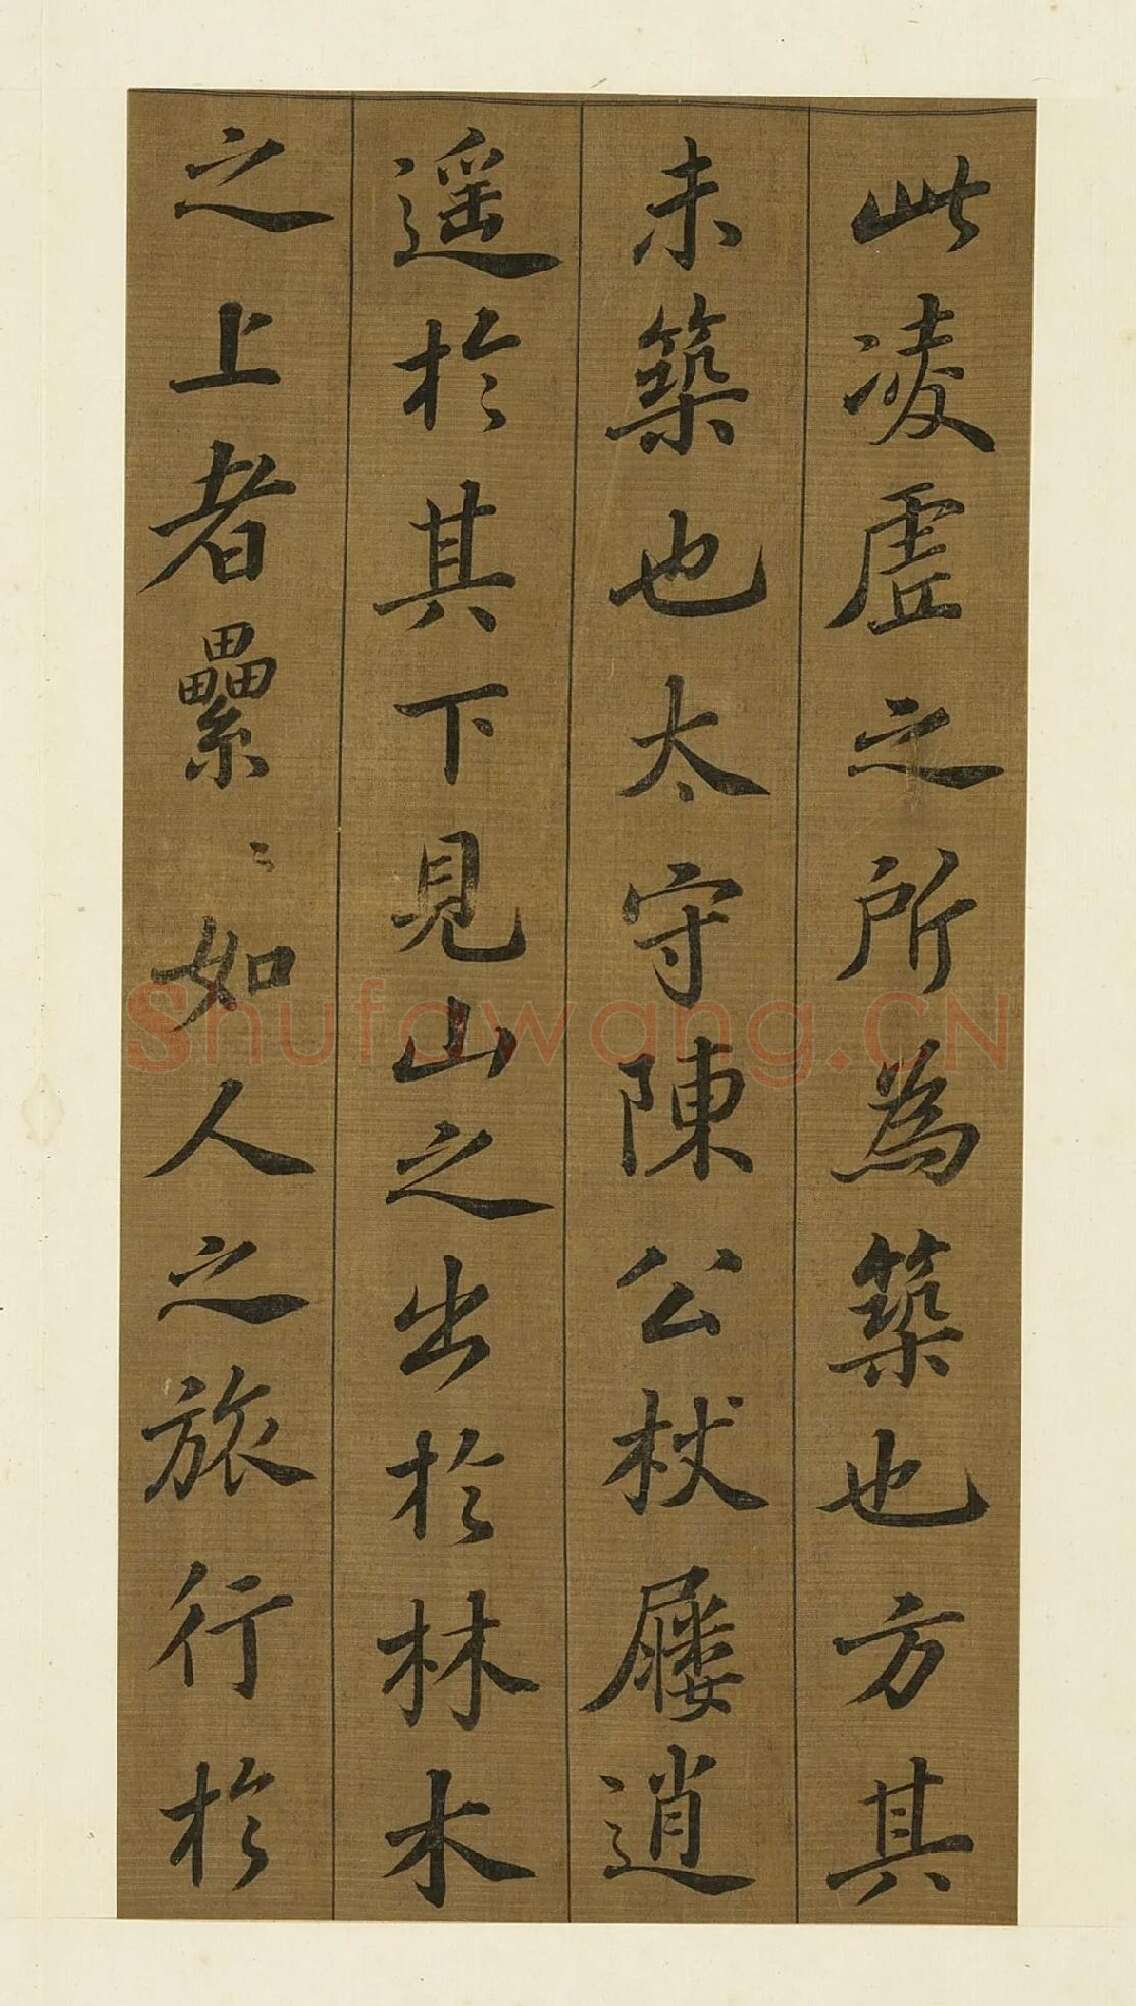 此淩虛之所為築也方其
未築也太守陳公杖屨逍
遥於其下見山之出於林木
之上者纍〻如人之旅行於
Shufawang.CN